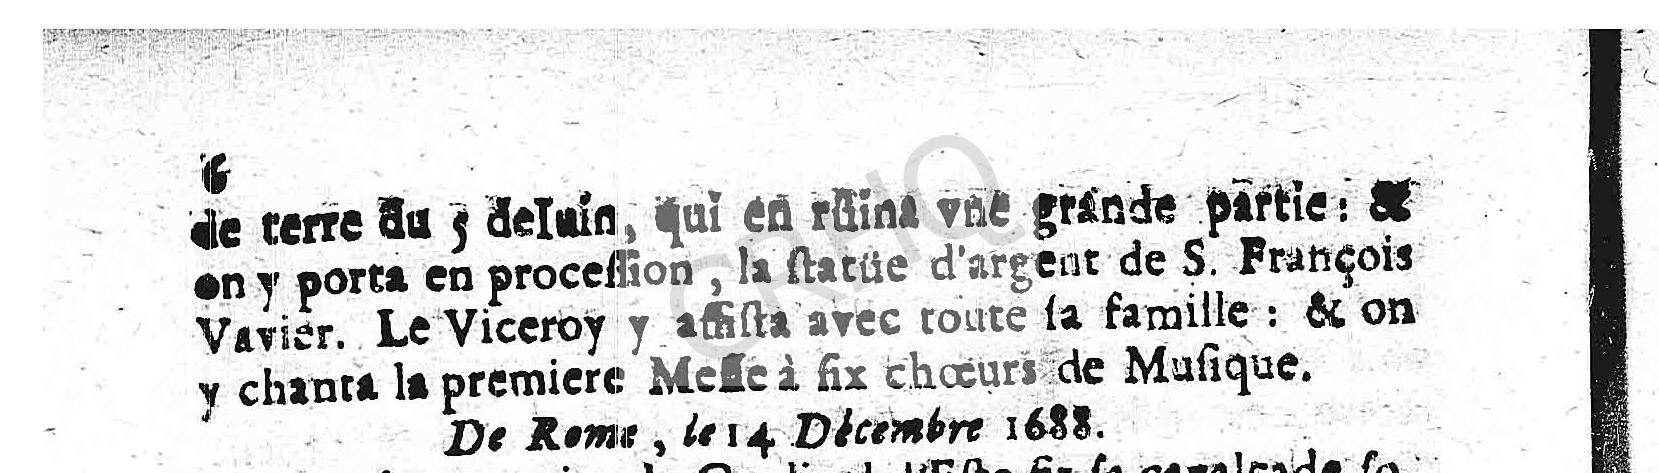 6
de terre du 5 deIuin, qui en rüina vne grande partie: &
on y porta en procession, la statüe d'argent de S. François
Vavier. Le Viceroy y assista avec toute sa famille: & on
y chanta la premiere Messe à six chœurs de Musique.
De Rome, le 14 Décembre 1688.
d'Este fit sa cavalcade so
CRHQ